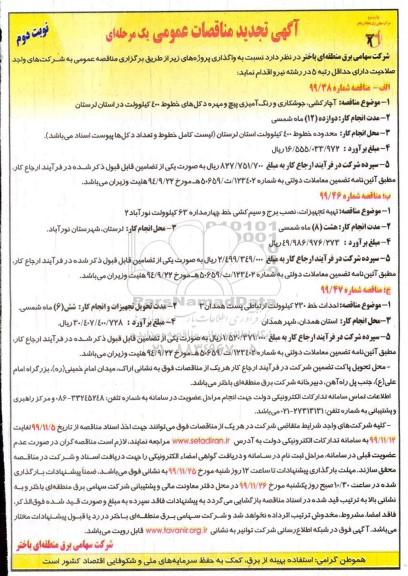 آگهی تجدید مناقصات عمومی یک مرحله‌ای
نوبت دوم
شرکت سهامی برق منطقه‌ای باختر در نظر دارد نسبت به واگذاری پروژه‌های زیر از طریق برگزاری مناقصه عمومی به شرکت‌های واجد
صلاحیت دارای حداقل رتبه ۵ در رشته نیرو اقدام نماید:
الف - مناقصه شماره ۹۹/۳۸
۱- موضوع مناقصه: آچارکشی، جوشکاری و رنگ‌آمیزی پیچ و مهره دکل‌های خطوط ۴۰۰ کیلوولت در استان لرستان
۲- مدت انجام کار: دوازده (۱۲) ماه شمسی
۳- محل انجام کار: محدوده خطوط ۴۰۰ کیلوولت استان لرستان (لیست کامل خطوط و تعداد دکل‌ها پیوست اسناد می‌باشد).
۴- مبلغ برآورد : ۱۶/۵۵۵/۰۳۳/۹۷۲ ریال
۵- سپرده شرکت در فرآیند ارجاع کار به مبلغ ۸۲۷/۷۵۱/۷۰۰ ریال به صورت یکی از تضامین قابل قبول ذکر شده در فرآیند ارجاع کار،
مطابق آئین‌نامه تضمین معاملات دولتی به شماره ۱۲۳۴۰۲/ت۵۰۶۵۹هـ مورخ ۹۴/۹/۲۲ هئیت وزیران می‌باشد.
ب: مناقصه شماره ۹۹/۴۶
۱- موضوع مناقصه: تهیه تجهیزات، نصب برج و سیم‌کشی خط چهارمداره ۶۳ کیلوولت نورآباد ۲
۲- مدت انجام کار: هشت (۸) ماه شمسی
۳- محل انجام کار: لرستان، شهرستان نورآباد.
۴- مبلغ برآورد : ۴۹/۹۸۶/۹۷۶/۲۷۳ ریال
۵- سپرده شرکت در فرآیند ارجاع کار به مبلغ ۲/۴۹۹/۳۴۹/۰۰۰ ریال به صورت یکی از تضامین قابل قبول ذکر شده در فرآیند ارجاع کار،
مطابق آئین‌نامه تضمین معاملات دولتی به شماره ۱۲۳۴۰۲/ت۵۰۶۵۹هـ مورخ ۹۴/۹/۲۲ هئیت وزیران می‌باشد.
ج: مناقصه شماره ۹۹/۴۷
۱- موضوع مناقصه: احداث خط ۲۳۰ کیلوولت ارتباطی پست همدان ۳
۲- مدت تحویل تجهیزات و انجام کار: شش (۶) ماه شمسی.
۳- محل انجام کار: استان همدان، شهر همدان
۴- مبلغ برآورد : ۳۰/۴۰۷/۴۰۰/۷۲۸ ریال.
۵- سپرده شرکت در فرآیند ارجاع کار به مبلغ ۱/۵۲۰/۳۷۱/۰۰۰ ریال به صورت یکی از تضامین قابل قبول ذکر شده در فرآیند ارجاع کار،
مطابق آئین‌نامه تضمین معاملات دولتی به شماره ۱۲۳۴۰۲/ت۵۰۶۵۹هـ مورخ ۹۴/۹/۲۲ هئیت وزیران می‌باشد.
- محل تحویل پاکت تضمین شرکت در فرآیند ارجاع کار هر یک از مناقصات فوق به نشانی اراک، میدان امام خمینی(ره)، بزرگراه امام
علی(ع)، جنب پل راه‌آهن، دبیرخانه شرکت برق منطقه‌ای باختر می‌باشد.
اطلاعات تماس سامانه تدارکات الکترونیکی دولت جهت انجام مراحل عضویت در سامانه: تلفن ۳۳۲۴۵۲۴۸-۰۸۶ و مرکز راهبری
و پشتیبانی به شماره تلفن: ۲۷۳۱۳۱۳۱-۰۲۱ می‌باشد.
- کلیه شرکت‌های واجد شرایط متقاضی شرکت در هر یک از مناقصات فوق می‌توانند جهت اخذ اسناد مناقصه از تاریخ ۹۹/۱۱/۵ لغایت
۹۹/۱۱/۱۲ به سامانه تدارکات الکترونیکی دولت به آدرس www.setadiran.ir مراجعه نمایند، لازم است مناقصه گران در صورت عدم
عضویت قبلی در سامانه، مراحل ثبت نام در سامانه و دریافت گواهی امضاء الکترونیکی را جهت دریافت اسناد و شرکت در مناقصه
محقق سازند. مهلت بارگذاری پیشنهادات تا ساعت ۱۲ روز شنبه مورخ ۹۹/۱۱/۲۵ به نشانی فوق می‌باشد. ضمناً پیشنهادات بارگذاری
شده در ساعت ۱۰/۳۰ صبح روز یکشنبه مورخ ۹۹/۱۱/۲۶ در محل دفتر معاونت مالی و پشتیبانی شرکت سهامی برق منطقه‌ای باختر و به
نشانی بالا به ترتیب قید شده در اسناد مناقصه بازگشایی می‌گردد به پیشنهادات فاقد سپرده به مبلغ و صورت قید شده فوق‌الذکر،
فاقد امضا، مشروط، مخدوش ترتیب اثر داده نخواهد شد و شرکت سهامی برق منطقه‌ای باختر در رد یا قبول پیشنهادات مختار
می‌باشد. آگهی فوق در شبکه اطلاع‌رسانی شرکت توانیر به نشانی www.tavanir.org.ir قابل رویت می‌باشد.
شرکت سهامی برق منطقه‌ای باختر
هموطن گرامی: استفاده بهینه از برق، کمک به حفظ سرمایه‌های ملی و شکوفایی اقتصاد کشور است